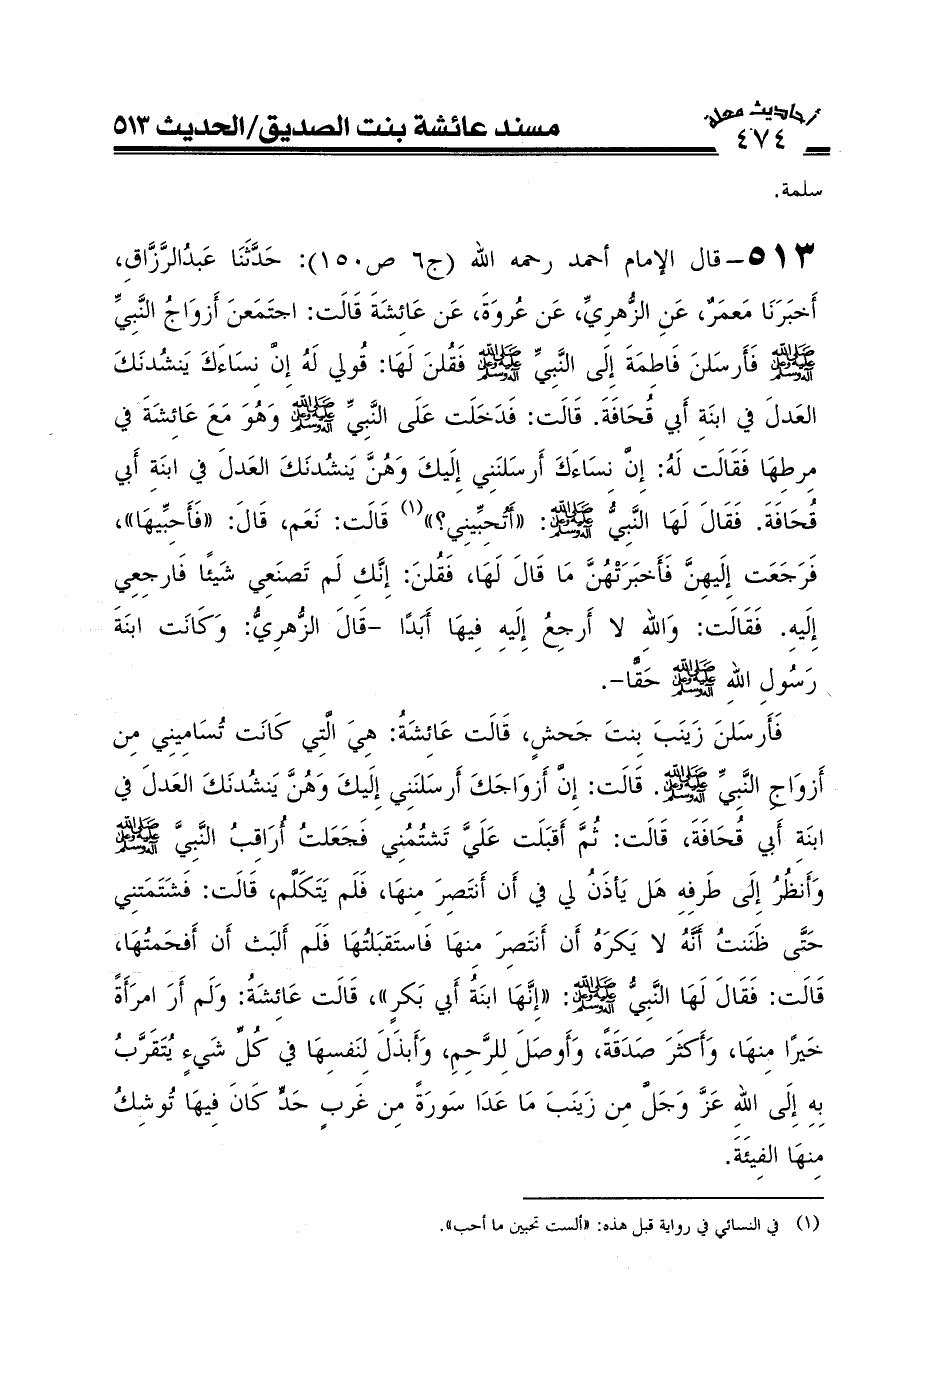 أحاديث معلة
٤٧٤
مسند عائشة بنت الصديق/الحديث ٥١٣
سلمة.
٥١٣- قال الإمام أحمد رحمه الله (ج٦ ص١٥٠): حَدَّثَنَا عَبدُالرَّزَّاقِ،
أَخبَرَنَا مَعمَرٌ، عَنِ الزُّهرِيِّ، عَن عُروَةَ، عَن عَائِشَةَ قَالَت: اجتَمَعنَ أَزوَاجُ النَّبِيِّ
ﷺ فَأَرسَلنَ فَاطِمَةَ إِلَى النَّبِيِّ ﷺ فَقُلنَ لَهَا: قُولِي لَهُ إِنَّ نِسَاءَكَ يَنشُدنَكَ
العَدلَ فِي ابنَةِ أَبِي قُحَافَةَ. قَالَت: فَدَخَلَت عَلَى النَّبِيِّ ﷺ وَهُوَ مَعَ عَائِشَةَ فِي
مِرطِهَا فَقَالَت لَهُ: إِنَّ نِسَاءَكَ أَرسَلنَنِي إِلَيكَ وَهُنَّ يَنشُدنَكَ العَدلَ فِي ابنَةِ أَبِي
قُحَافَةَ. فَقَالَ لَهَا النَّبِيُّ ﷺ: «أَتُحِبِّينِي؟»(١) قَالَت: نَعَم، قَالَ: «فَأَحِبِّيهَا»،
فَرَجَعَت إِلَيهِنَّ فَأَخبَرَتْهُنَّ مَا قَالَ لَهَا، فَقُلنَ: إِنَّكِ لَم تَصنَعِي شَيئًا فَارجِعِي
إِلَيهِ. فَقَالَت: وَاللهِ لا أَرجِعُ إِلَيهِ فِيهَا أَبَدًا -قَالَ الزُّهرِيُّ: وَكَانَت ابنَةَ
رَسُولِ اللهِ ﷺ حَقًّا-.
فَأَرسَلنَ زَينَبَ بِنتَ جَحشٍ، قَالَت عَائِشَةُ: هِيَ الَّتِي كَانَت تُسَامِينِي مِن
أَزوَاجِ النَّبِيِّ ﷺ. قَالَت: إِنَّ أَزوَاجَكَ أَرسَلنَنِي إِلَيكَ وَهُنَّ يَنشُدنَكَ العَدلَ فِي
ابنَةِ أَبِي قُحَافَةَ، قَالَت: ثُمَّ أَقبَلَت عَلَيَّ تَشتُمُنِي فَجَعَلتُ أُرَاقِبُ النَّبِيَّ ﷺ
وَأَنظُرُ إِلَى طَرفِهِ هَل يَأذَنُ لِي فِي أَن أَنتَصِرَ مِنهَا، فَلَم يَتَكَلَّم، قَالَت: فَشَتَمَتنِي
حَتَّى ظَنَنتُ أَنَّهُ لا يَكرَهُ أَن أَنتَصِرَ مِنهَا فَاستَقبَلتُهَا فَلَم أَلبَث أَن أَفحَمتُهَا،
قَالَت: فَقَالَ لَهَا النَّبِيُّ ﷺ: «إِنَّهَا ابنَةُ أَبِي بَكرٍ»، قَالَت عَائِشَةُ: وَلَم أَرَ امرَأَةً
خَيرًا مِنهَا، وَأَكثَرَ صَدَقَةً، وَأَوصَلَ لِلرَّحِمِ، وَأَبذَلَ لِنَفسِهَا فِي كُلِّ شَيءٍ يُتَقَرَّبُ
بِهِ إِلَى اللهِ عَزَّ وَجَلَّ مِن زَينَبَ مَا عَدَا سَورَةً مِن غَربِ حَدٍّ كَانَ فِيهَا تُوشِكُ
مِنهَا الفِيئَةَ.
(١) في النسائي في رواية قبل هذه: «ألست تحبين ما أحب».